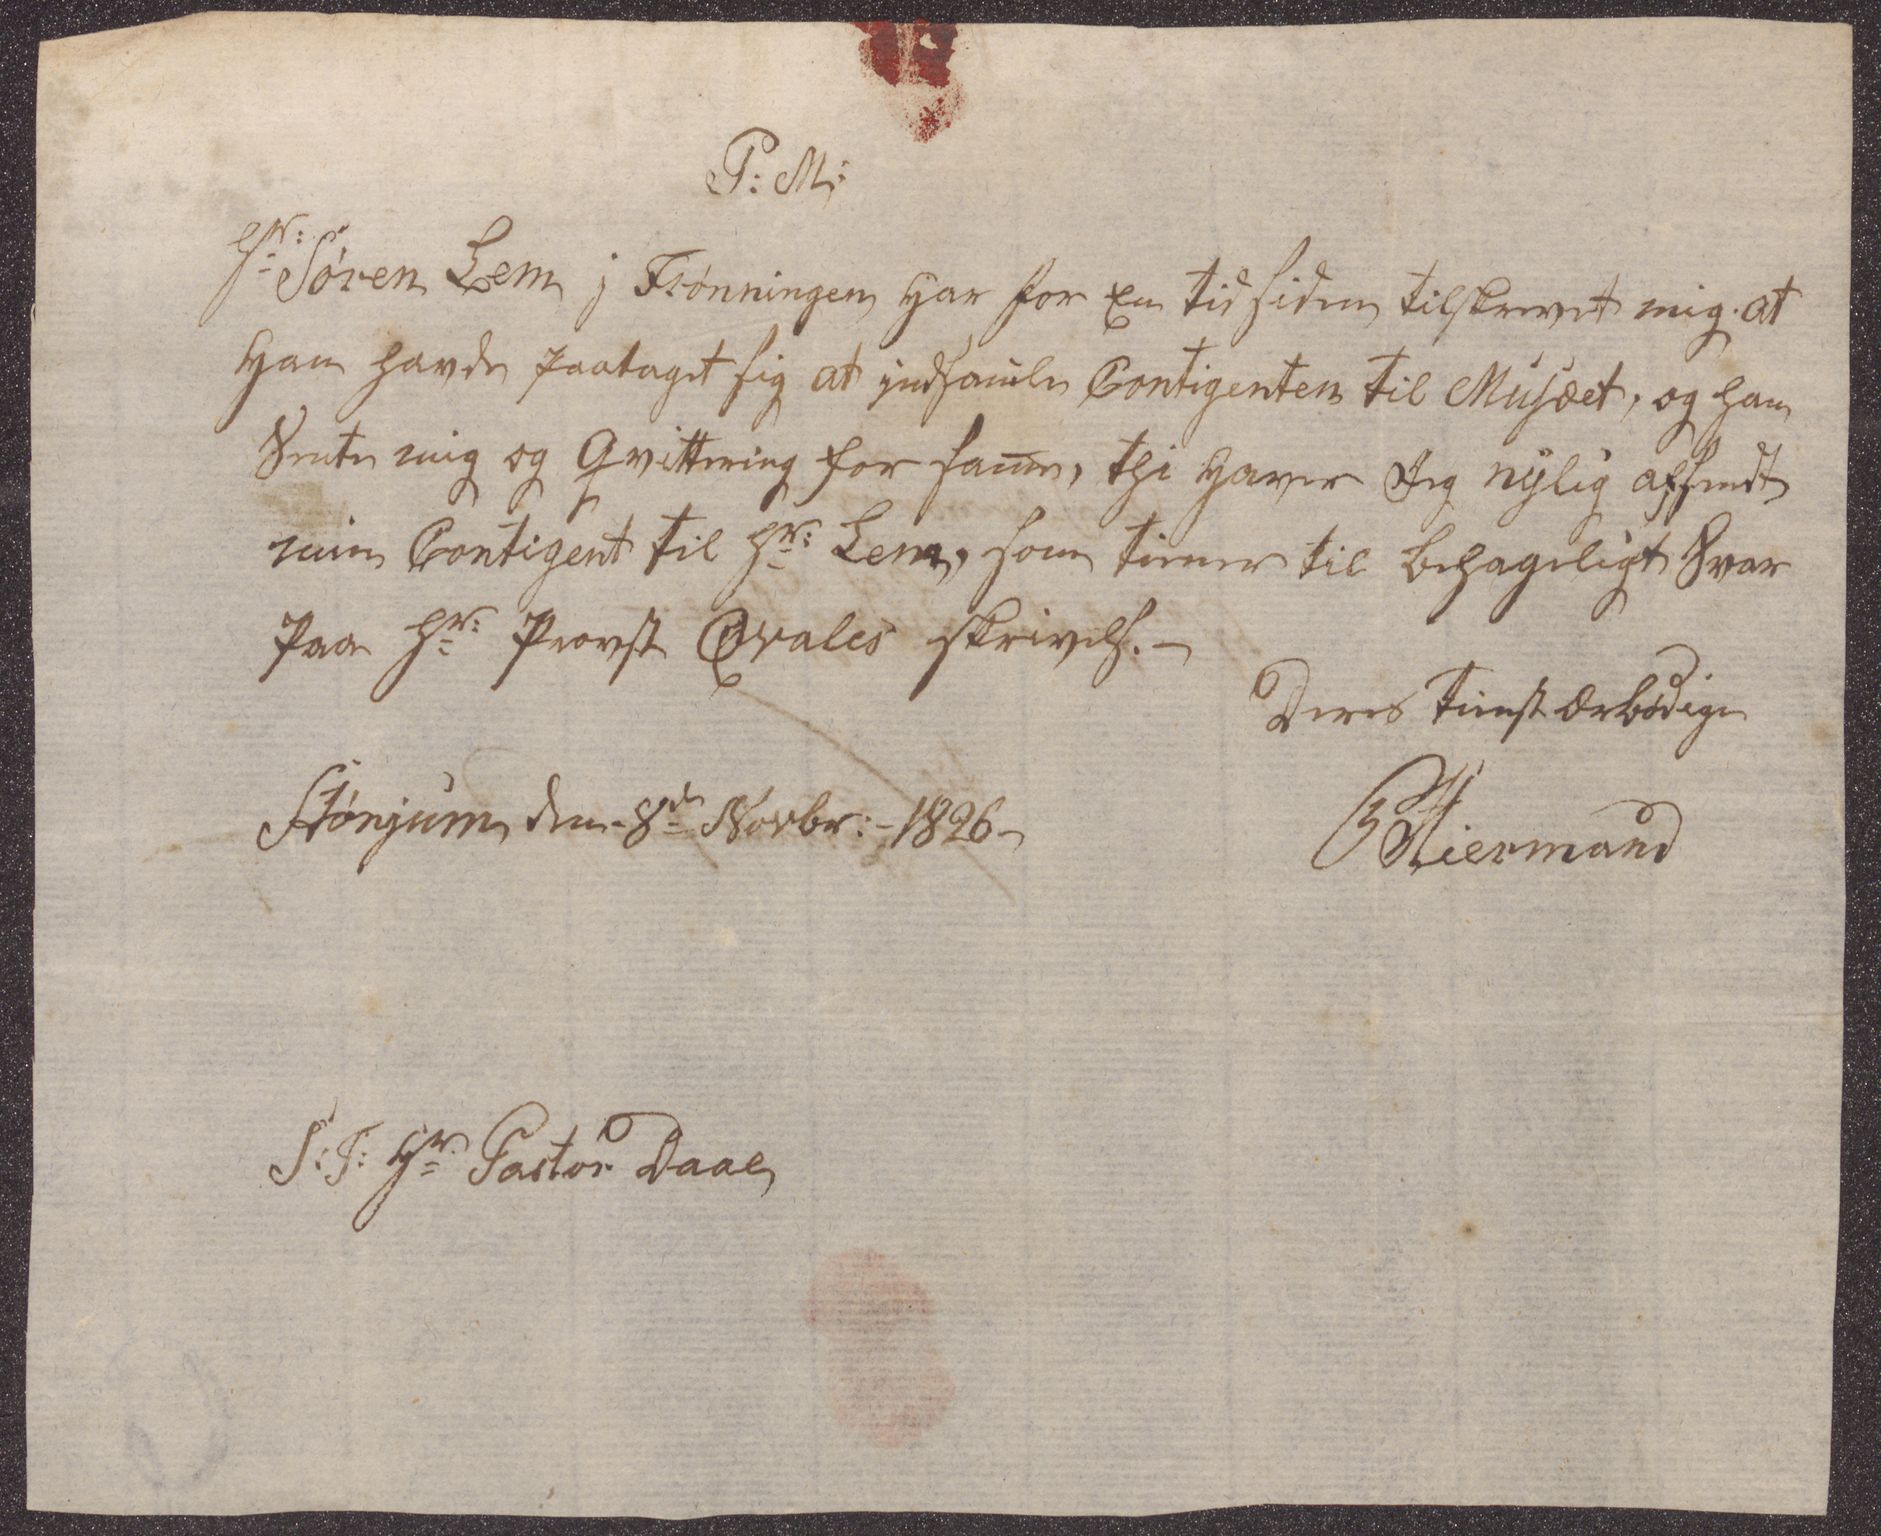 P: M:
Hr: Søren Lem j Frønningen har for En tid siden tilskrevet mig at
han havde paataget sig at jndsamle Contigenten til Musæet, og han
Sente mig og Qvittering for samme, thi haver Jeg nylig afsendt
min Contigent til Hr: Lem, som tiener til behageligt Svar
paa Hr: Provst Qvales skrivels. –
Deres tienst ærbødige
Stønjum den 8de Novbr: – 1826 –
Hiermand
S: T: Hr Pastor Daae